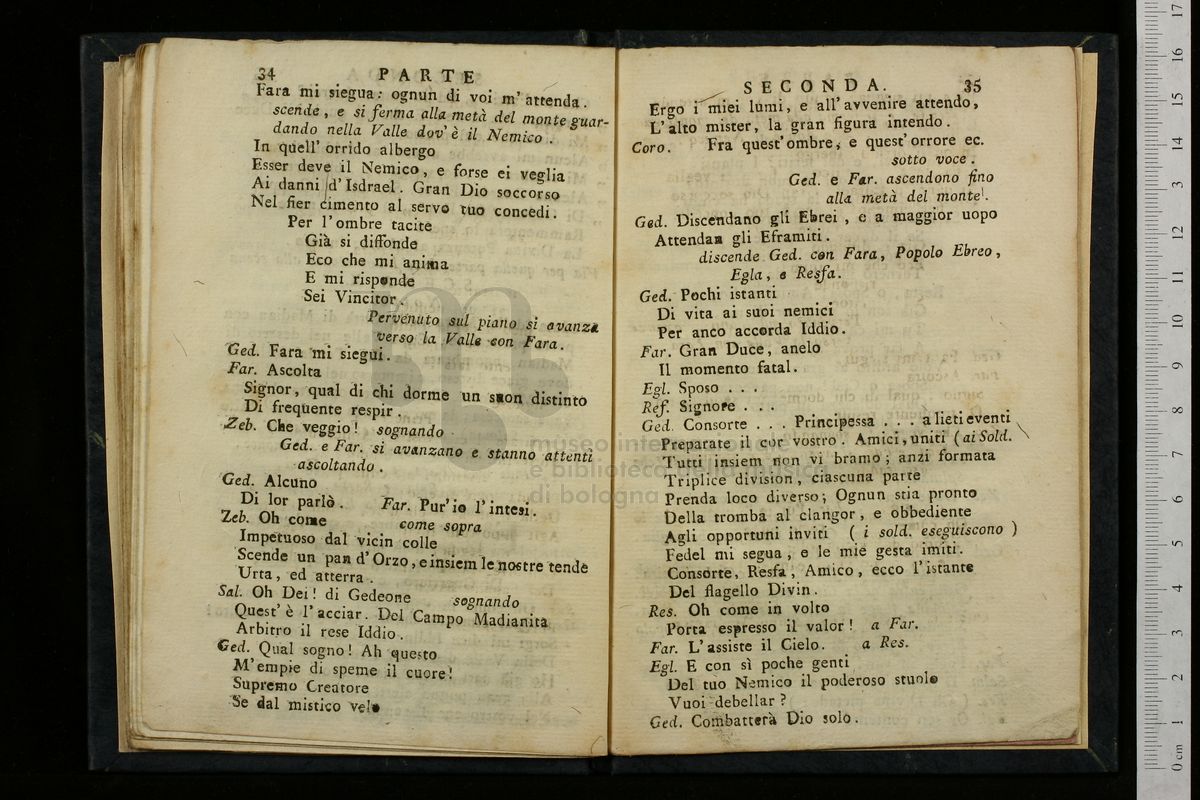 34 PARTE
Fara mi siegua: ognun di voi m' attenda.
scende, e si ferma alla metà del monte guar-
dando nella Valle dov' è il Nemico.
In quell' orrido albergo
Esser deve il Nemico, e forse ei veglia
Ai danni d' Isdrael. Gran Dio soccorso
Nel fier cimento al servo tuo concedi.
Per l' ombre tacite
Già si diffonde
Eco che mi anima
E mi risponde
Sei Vincitor.
Pervenuto sul piano si avanza
verso la Valle con Fara.
Ged. Fara mi siegui.
Far. Ascolta
Signor, qual di chi dorme un suon distinto
Di frequente respir.
Zeb. Che veggio! sognando
Ged. e Far. si avanzano e stanno attenti
ascoltando.
Ged. Alcuno
Di lor parlò. Far. Pur' io l' intesi.
Zeb. Oh come come sopra
Impetuoso dal vicin colle
Scende un pan d' Orzo, e insiem le nostre tende
Urta, ed atterra.
Sal. Oh Dei! di Gedeone sognando
Quest' è l' acciar. Del Campo Madianita
Arbitro il rese Iddio.
Ged. Qual sogno! Ah questo
M' empie di speme il cuore!
Supremo Creatore
Se dal mistico velo
SECONDA. 35
Ergo i miei lumi, e all' avvenire attendo,
L' alto mister, la gran figura intendo.
Coro. Fra quest' ombre, e quest' orrore ec.
sotto voce.
Ged. e Far. ascendono fino
alla metà del monte.
Ged. Discendano gli Ebrei, e a maggior uopo
Attendan gli Eframiti.
discende Ged. con Fara, Popolo Ebreo,
Egla, e Resfa.
Ged. Pochi istanti
Di vita ai suoi nemici
Per anco accorda Iddio.
Far. Gran Duce, anelo
Il momento fatal.
Egl. Sposo . . .
Ref. Signore . . .
Ged. Consorte . . . Principessa . . . a lieti eventi
Preparate il cor vostro. Amici, uniti (ai Sold.
Tutti insiem non vi bramo; anzi formata
Triplice division, ciascuna parte
Prenda loco diverso; Ognun stia pronto
Della tromba al clangor, e obbediente
Agli opportuni inviti ( i sold. eseguiscono )
Fedel mi segua, e le mie gesta imiti.
Consorte, Resfa, Amico, ecco l' istante
Del flagello Divin.
Res. Oh come in volto
Porta espresso il valor! a Far.
Far. L' assiste il Cielo. a Res.
Egl. E con sì poche genti
Del tuo Nemico il poderoso stuolo
Vuoi debellar?
Ged. Combatterà Dio solo.
museo internazionale
e biblioteca della musica
di bologna
0 cm 1 2 3 4 5 6 7 8 9 10 11 12 13 14 15 16 17